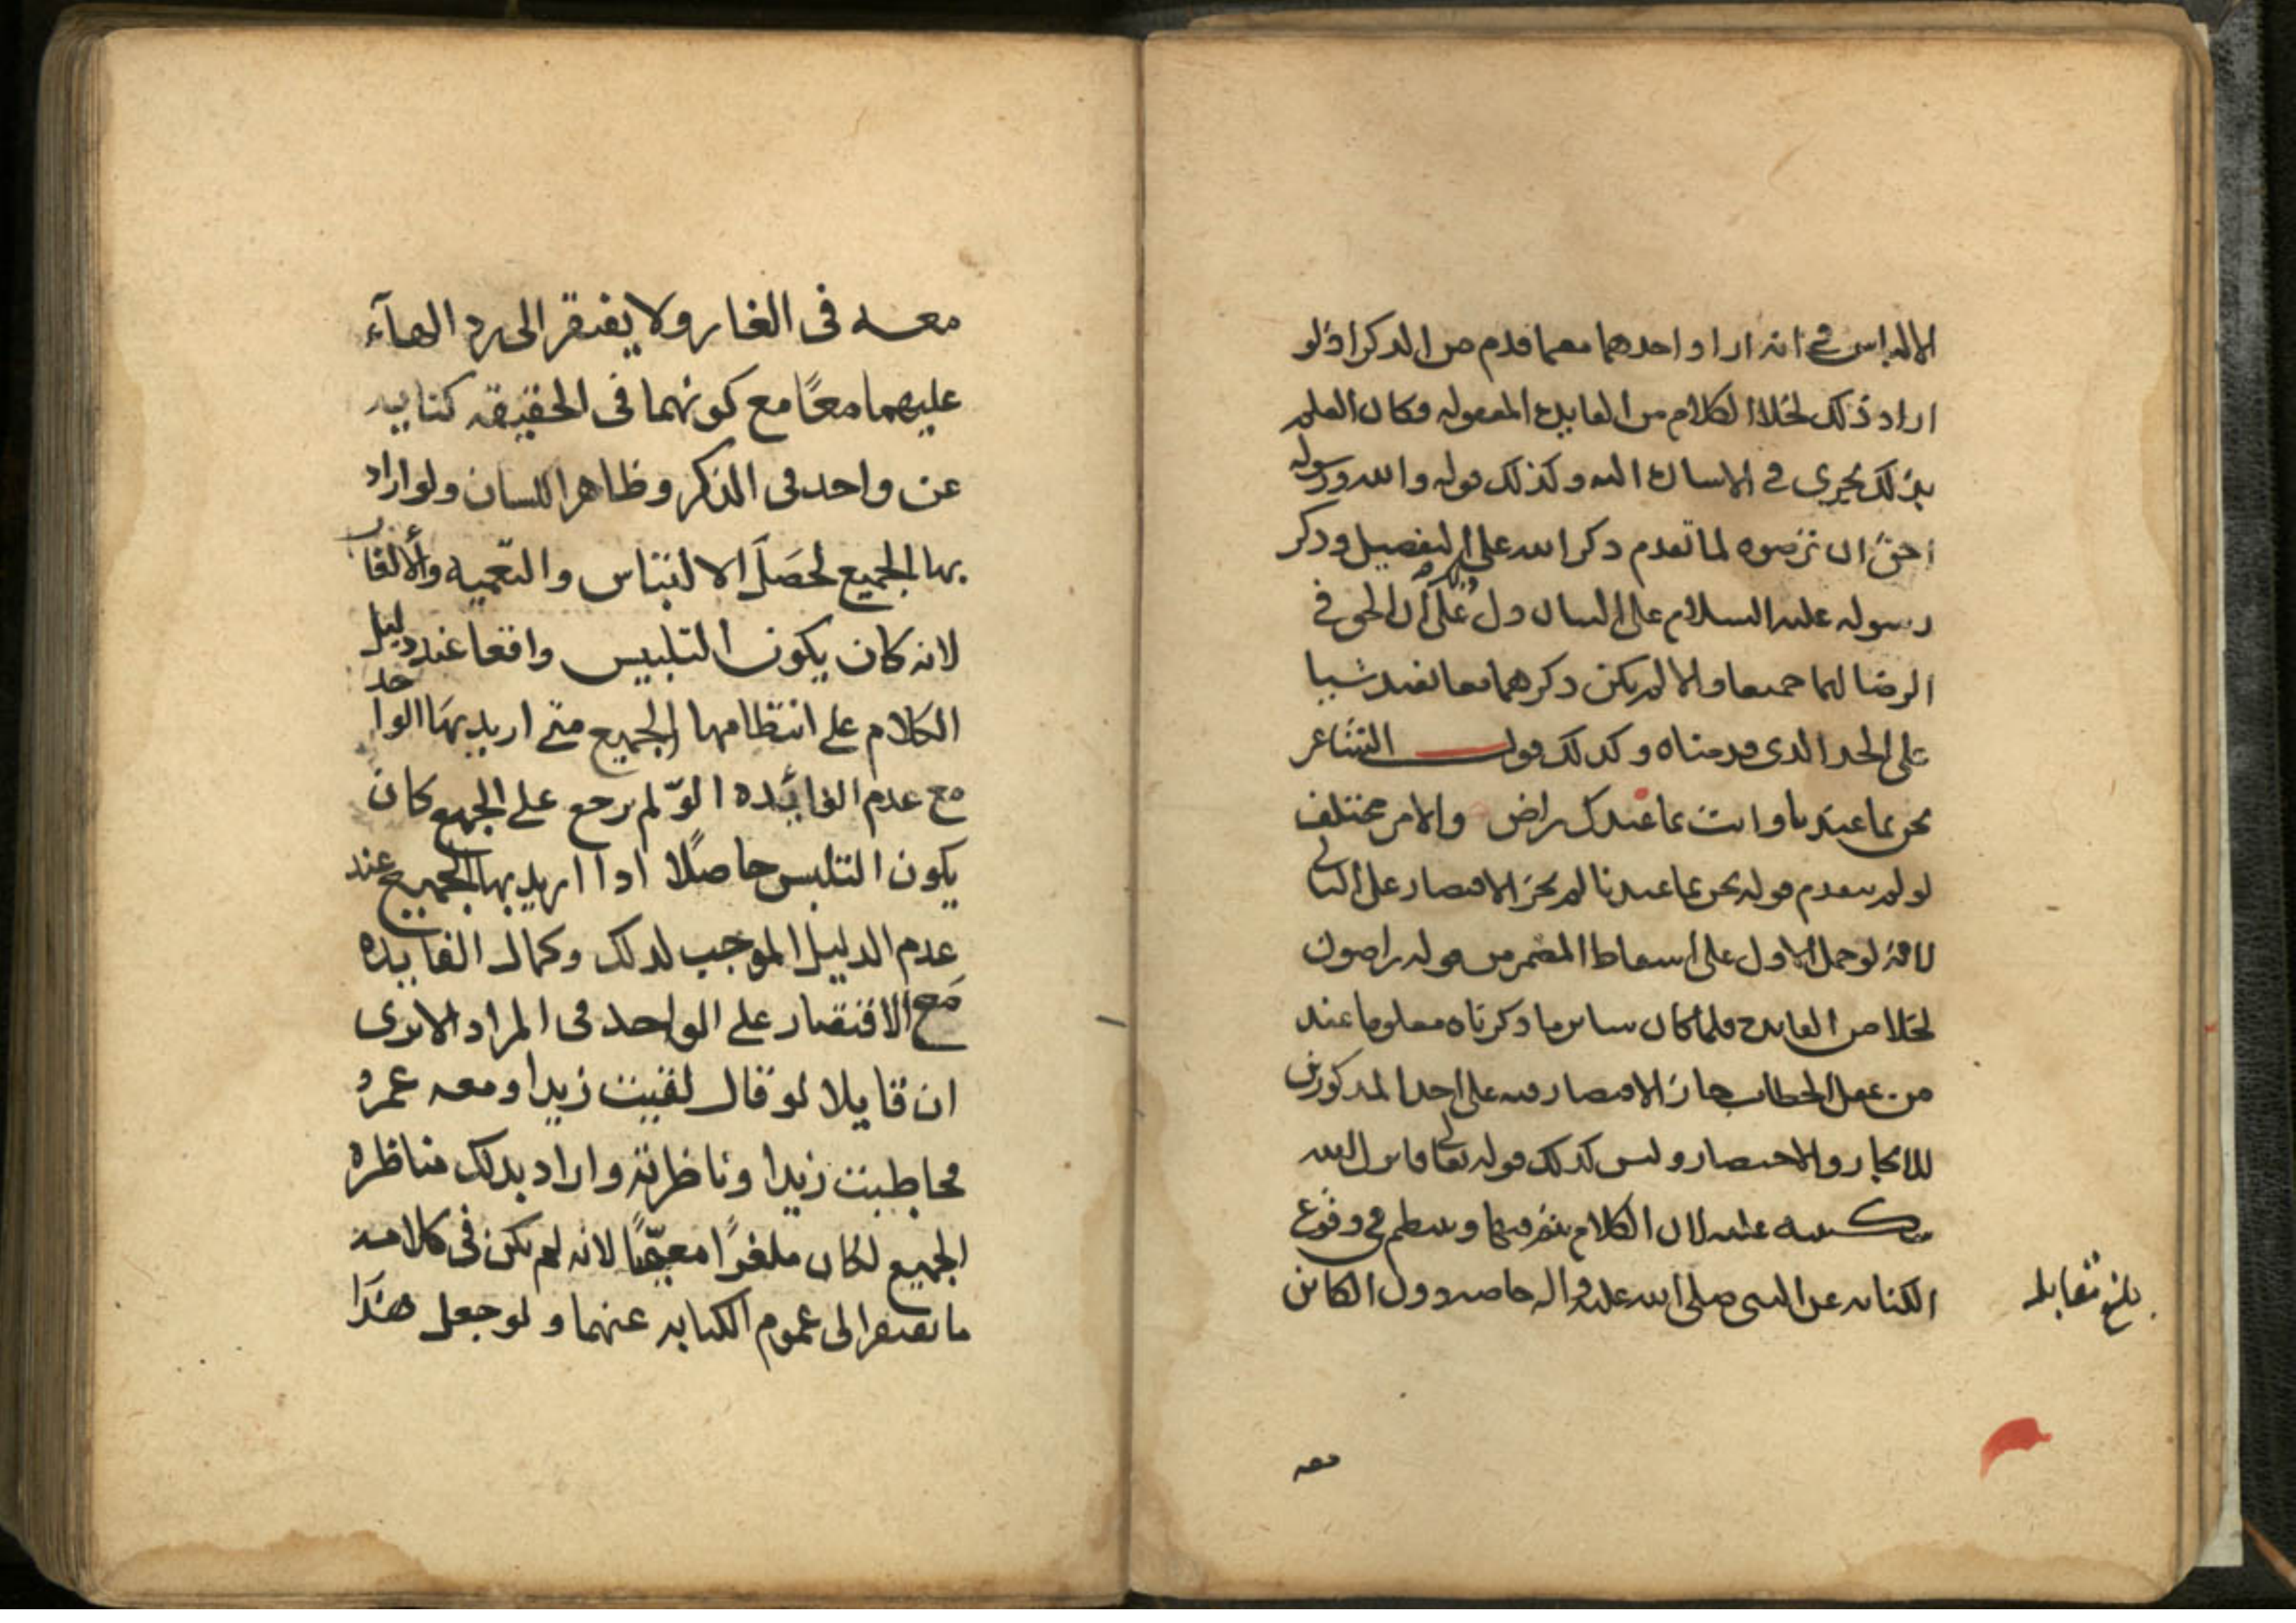 الالباس في انه اراد احدهما معما قدم من الذكر اذ لو
اراد ذلك لخلا الكلام من الفايده المعقوله وكان العلم
بذلك يجري في الاسان اليه وكذلك قوله والله ورسوله
احق ان ترضوه لما تقدم ذكر الله على التفصيل وذكر
رسوله عليه السلام على البيان دل على ان الحق في
الرضا لهما جميعا والا لم يكن ذكرهما معا يفيد شيا
على الحد الذي قدمناه وكذلك قول الشاعر
نحن بما عندنا وانت بما عندك راض والامر مختلف
لو لم يتقدم قوله نحن بما عندنا لم يجز الاقتصار على الثاني
لانه لو حمل الاول على اسقاط المضمر من قوله راضون
لخلا من الفايده فلما كان ساير ما ذكرناه معلوما عند
من عقل الخطاب جاز الاقتصار فيه على احد المذكورين
للايجاز والاختصار وليس كذلك قوله تعالى فانزل الله
سكينته عليه لان الكلام يتم فيها وينتظم في وقوع
الكنايه عن النبي صلى الله عليه واله خاصه دون الكاين
بلغ مقابله
معه
معه في الغار ولا يفتقر الى رد الهآء
عليهما معًا مع كونهما في الحقيقه كنايه
عن واحد في الذكر وظاهر اللسان ولو اراد
بها الجميع لحصَل الالتباس والتعميه والالغاز
لانه كان يكون التلبيس واقعا عند دليل
الكلام على انتظامها الجميع متى اريد بها الواحد
مع عدم الفائده لو لم يرجع على الجميع كان
يكون التلبس حاصلًا اذا اريد بها الجميع عند
عدم الدليل الموجب لذلك وكمال الفايده
مع الاقتصار على الواحد في المراد الا ترى
ان قايلا لو قال لقيت زيدا ومعه عمرو
فخاطبت زيدا وناظرته واراد بذلك مناظره
الجميع لكان ملغزًا معمّيًا لانه لم يكن في كلامه
ما يفتقر الى عموم الكنايه عنهما ولو جعل هذا